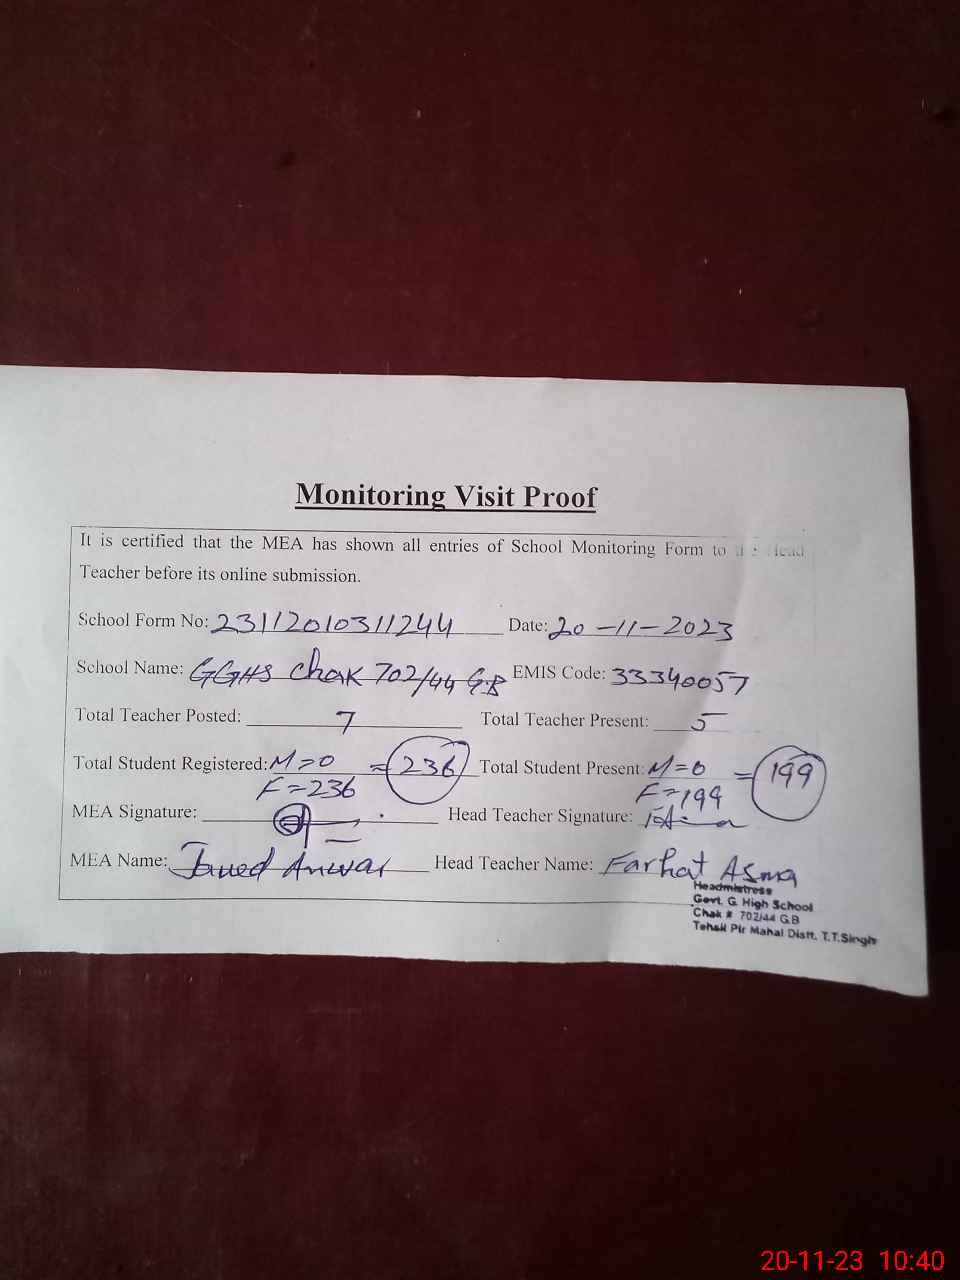 Monitoring Visit Proof
It is certified that the MEA has shown all entries of School Monitoring Form to the Head
Teacher before its online submission.
School Form No: 23112010311244 Date: 20-11-2023
School Name: GGHS Chak 702/44 GB EMIS Code: 33340057
Total Teacher Posted: 7 Total Teacher Present: 5
Total Student Registered: M=0 = 236 Total Student Present: M=0 = 199
F=236 F=199
MEA Signature: Head Teacher Signature:
MEA Name: Javed Anwar Head Teacher Name: Farhat Asma
Headmistress
Govt. G. High School
Chak # 702/44 G.B
Tehsil Pir Mahal Distt. T.T.Singh
20-11-23 10:40